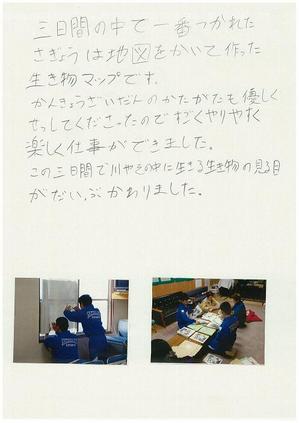 三日間の中で一番つかれた
さぎょうは地図をかいて作った
生き物マップです。
かんきょうざいだんのかたがたも優しく
せっしてくださったのですごくやりやすく
楽しく仕事ができました。
この三日間で川やその中に生きる生き物の見る目
がだいぶかわりました。